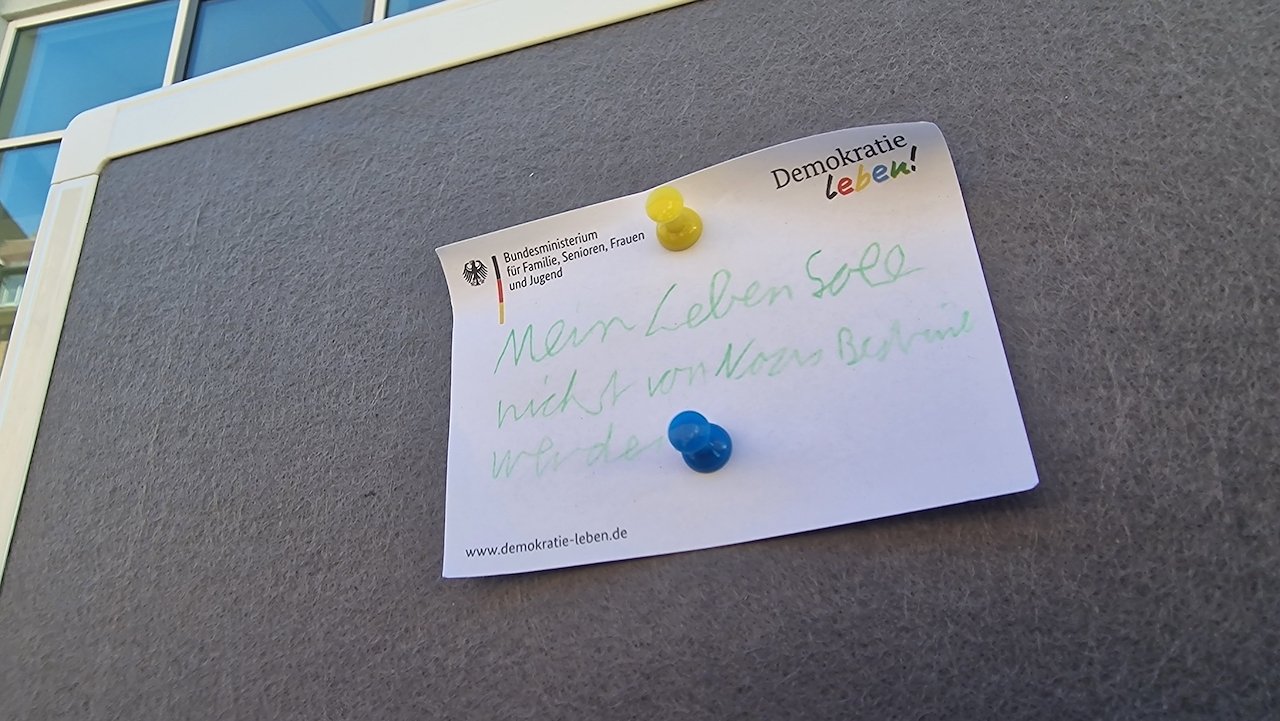 Demokratie
Leben!
Bundesministerium
für Familie, Senioren, Frauen
und Jugend
Mein Leben Soll
nicht von Nazis
werden
www.demokratie-leben.de